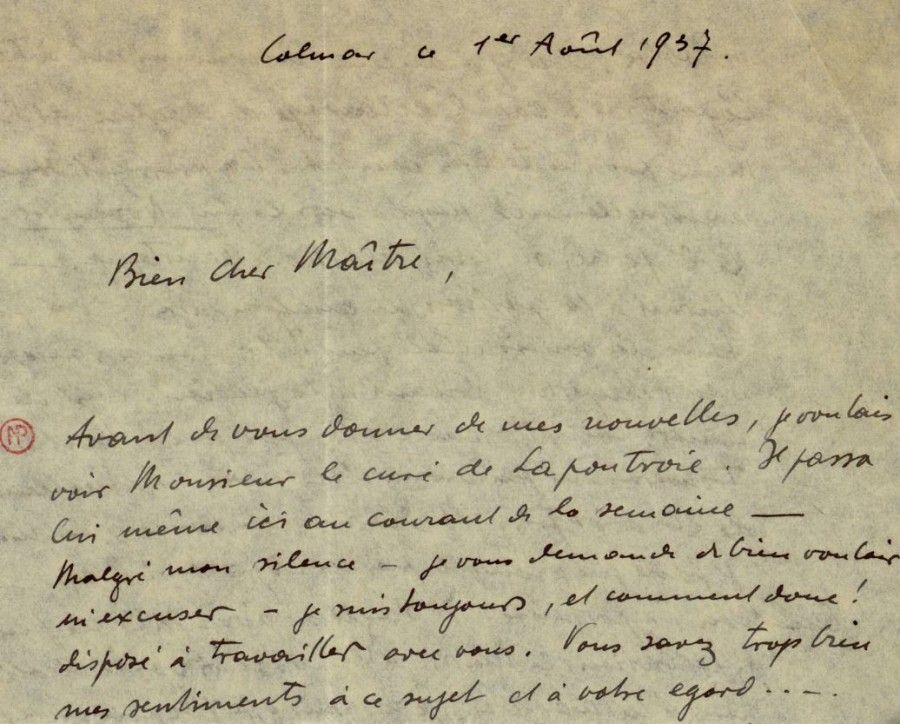 Colmar ce 1er Août 1937.
Bien cher Maître,
MP
Avant de vous donner de mes nouvelles, je voulais
voir Monsieur le curé de Lapoutroie. Il passa
lui même ici au courant de la semaine —
Malgré mon silence – je vous demande de bien vouloir
m'excuser – je suis toujours, et comment donc!
disposé à travailler avec vous. Vous savez trop bien
mes sentiments à ce sujet et à votre egard...–.